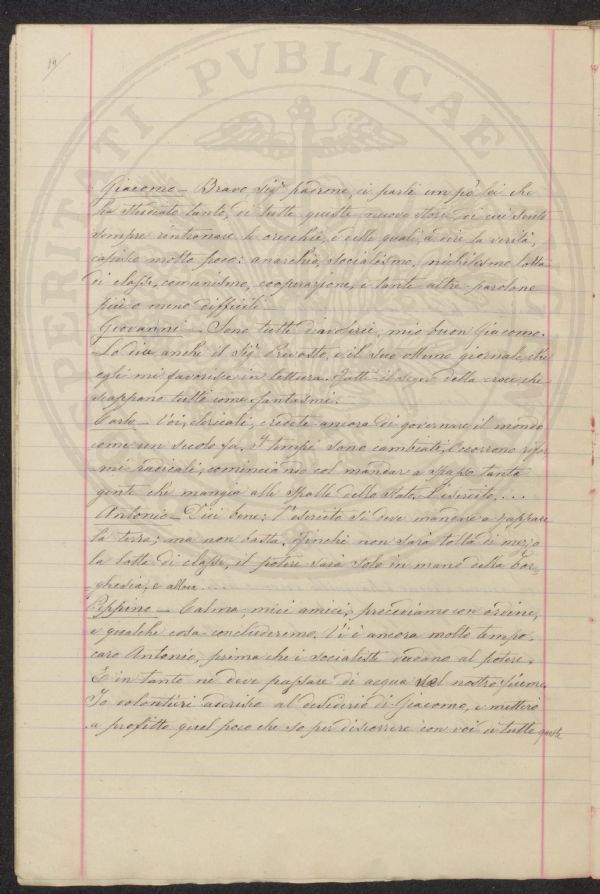 19/
SPERITATI PVBLICAE
Giacomo – Bravo Sigr padrone, ci parli un pò lei che
ha studiato tanto, di tutte queste nuove storie di cui sento
sempre rintronare le orecchie, e delle quali, a dire la verità,
capisco molto poco: anarchia, socialismo, nichilismo lotta
di classe, comunismo, cooperazione, e tante altre parolone
più o meno difficili.
Giovanni – Sono tutte diavolerie, mio buon Giacomo.
Lo dice anche il Sigr Prevosto, e il suo ottimo giornale, che
egli mi favorisce in lettura. Fatti il segno della croce che
scappano tutti come fantasmi.
Carlo – Voi, clericali, credete ancora di governare il mondo
come un secolo fa. I tempi sono cambiati. Occorrono rifor
mi radicali, cominciando col mandar a spasso tanta
gente che mangia alle spalle dello Stato. L'esercito....
Antonio – Dici bene; l'esercito si deve mandare a zappare
la terra; ma non basta. Finchè non sarà tolta di mezzo
la lotta di classe, il potere sarà solo in mano della bor-
ghesia, e allora....
Peppino – Calma, miei amici; procediamo con ordine,
e qualche cosa concluderemo. Vi è ancora molto tempo,
caro Antonio, prima che i socialisti vadano al potere.
E in tanto ne deve passare di acqua nel nostro fiume.
Io volentieri aderisco al desiderio di Giacomo, e metterò
a profitto quel poco che so per discorrere con voi di tutte queste